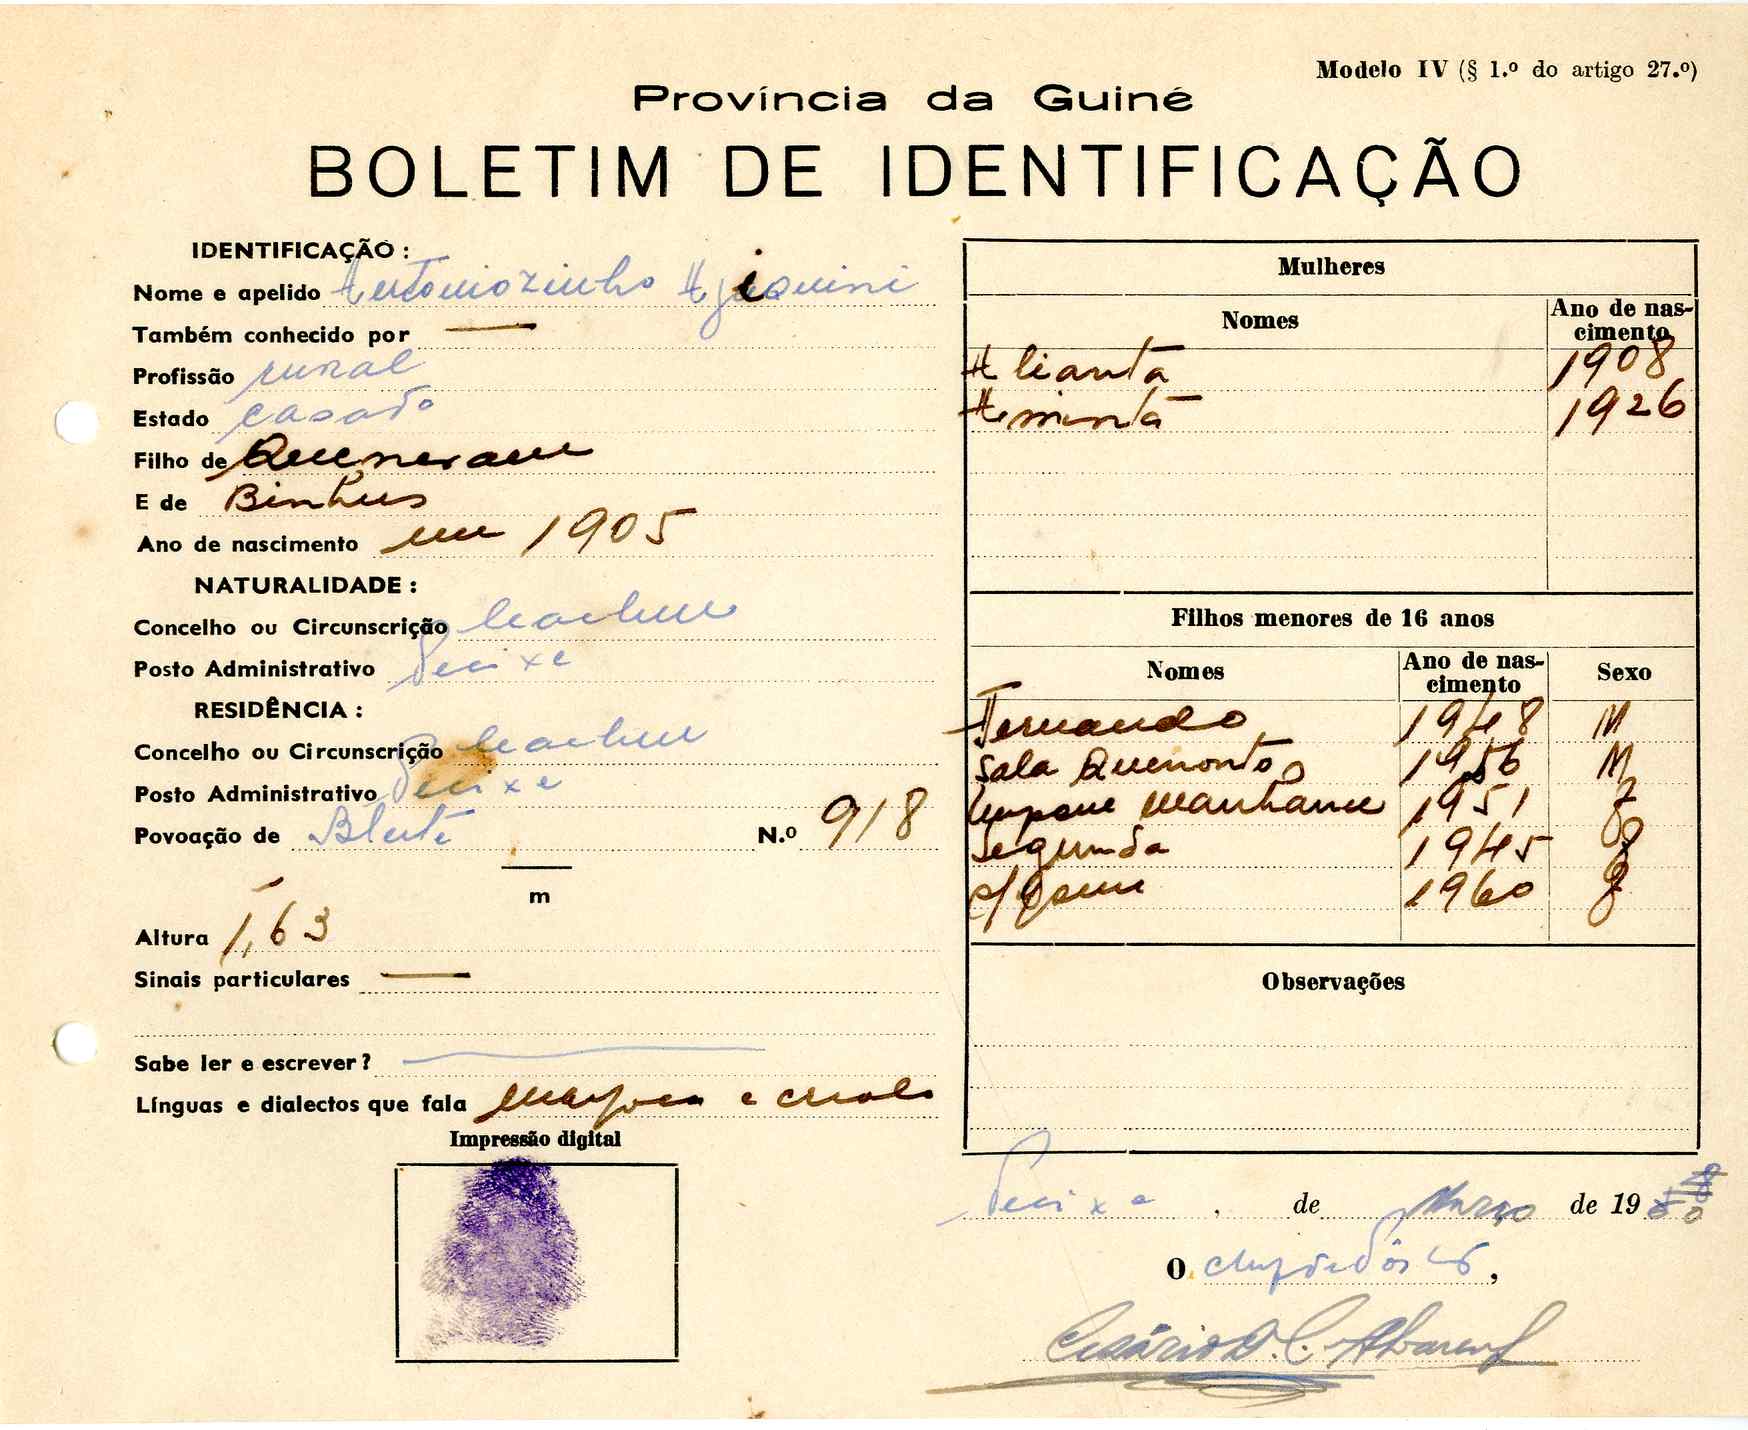 Modelo IV (§ 1.º do artigo 27.º)
Província da Guiné
BOLETIM DE IDENTIFICAÇÃO
IDENTIFICAÇÃO:
Nome e apelido Antoniozinho
Também conhecido por —
Profissão rural
Estado casado
Filho de
E de
Ano de nascimento em 1905
NATURALIDADE:
Concelho ou Circunscrição Cacheu
Posto Administrativo Pecixe
RESIDÊNCIA:
Concelho ou Circunscrição Cacheu
Posto Administrativo Pecixe
Povoação de N.º 918
m
Altura 1,63
Sinais particulares —
Sabe ler e escrever? —
Línguas e dialectos que fala e criolo
Impressão digital
Mulheres
Nomes Ano de nascimento
Alianta 1908
Aminta 1926
Filhos menores de 16 anos
Nomes Ano de nascimento Sexo
Fernando 1948 M
Sala 1956 M
1951 F
Segunda 1945 F
1960 F
Observações
Pecixe, de Março de 19
O chefe de Pôsto,
Cesário D. C. Alvarenga